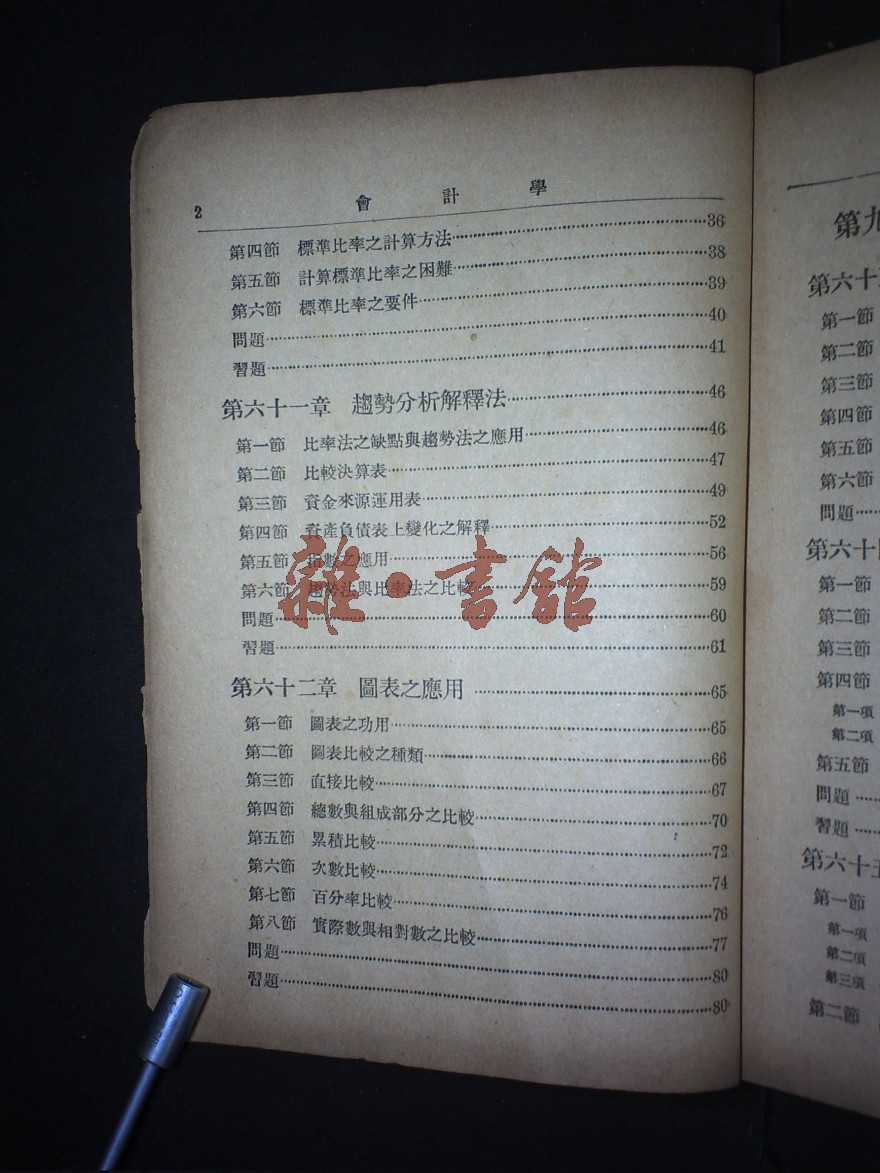 2 會計學
第四節 標準比率之計算方法 36
第五節 計算標準比率之困難 38
第六節 標準比率之要件 39
問題 40
習題 41
第六十一章 趨勢分析解釋法 46
第一節 比率法之缺點與趨勢法之應用 46
第二節 比較決算表 47
第三節 資金來源運用表 49
第四節 資產負債表上變化之解釋 52
第五節 指數之應用 56
第六節 趨勢法與比率法之比較 59
問題 60
習題 61
第六十二章 圖表之應用 65
第一節 圖表之功用 65
第二節 圖表比較之種類 66
第三節 直接比較 67
第四節 總數與組成部分之比較 70
第五節 累積比較 72
第六節 次數比較 74
第七節 百分率比較 76
第八節 實際數與相對數之比較 77
問題 80
習題 80
雜·書館
第九
第六十
第一節
第二節
第三節
第四節
第五節
第六節
問題
第六十
第一節
第二節
第三節
第四節
第一項
第二項
第五節
問題
習題
第六十五
第一節
第一項
第二項
第三項
第二節